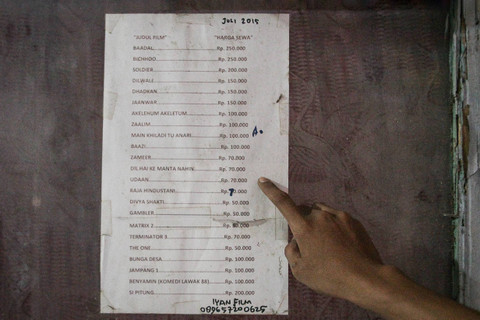 JULI 2015
"JUDUL FILM" "HARGA SEWA"
BAADAL Rp. 250.000
BICHHOO Rp. 250.000
SOLDIER Rp. 200.000
DILWALE Rp. 150.000
DHADKAN Rp. 150.000
JAANWAR Rp. 150.000
AKELEHUM AKELETUM Rp. 100.000
ZAALIM Rp. 100.000
MAIN KHILADI TU ANARI Rp. 100.000
BAAZI Rp. 100.000
ZAMEER Rp. 70.000
DIL HAI KE MANTA NAHIN Rp. 70.000
UDAAN Rp. 70.000
RAJA HINDUSTANI Rp. 70.000
DIVYA SHAKTI Rp. 50.000
GAMBLER Rp. 50.000
MATRIX 2 Rp.
TERMINATOR 3 Rp. 70.000
THE ONE Rp. 50.000
BUNGA DESA Rp. 100.000
JAMPANG 1 Rp. 100.000
BENYAMIN (KOMEDI LAWAK BE) Rp. 100.000
SI PITUNG Rp. 200.000
IYAN FILM
089657200625